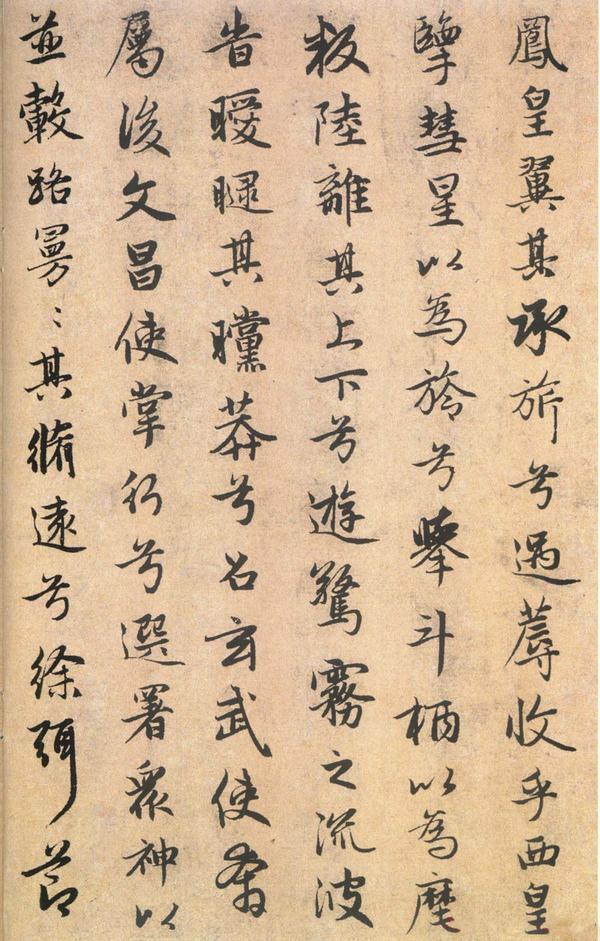 鳳皇翼其承旂兮遇蓐收乎西皇
擥彗星以為旍兮舉斗柄以為麾
叛陸離其上下兮遊驚霧之流波
旹曖曃其曭莽兮召玄武使奔
屬後文昌使掌行兮選署衆神以
並轂路曼〻其脩遠兮徐弭節